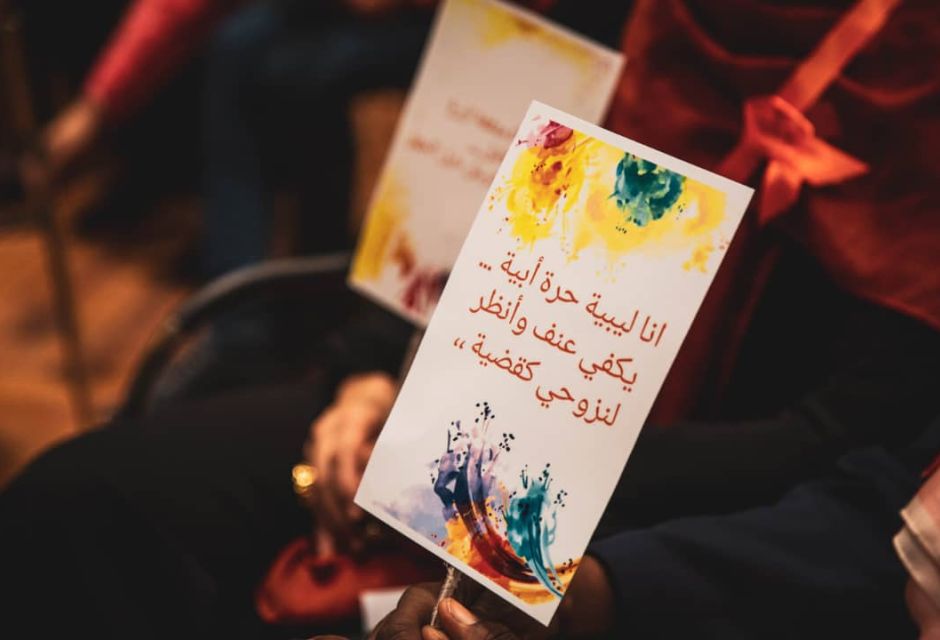 انا ليبية حرة أبية ...
يكفي عنف وأنظر
لنزوحي كقضية ،،